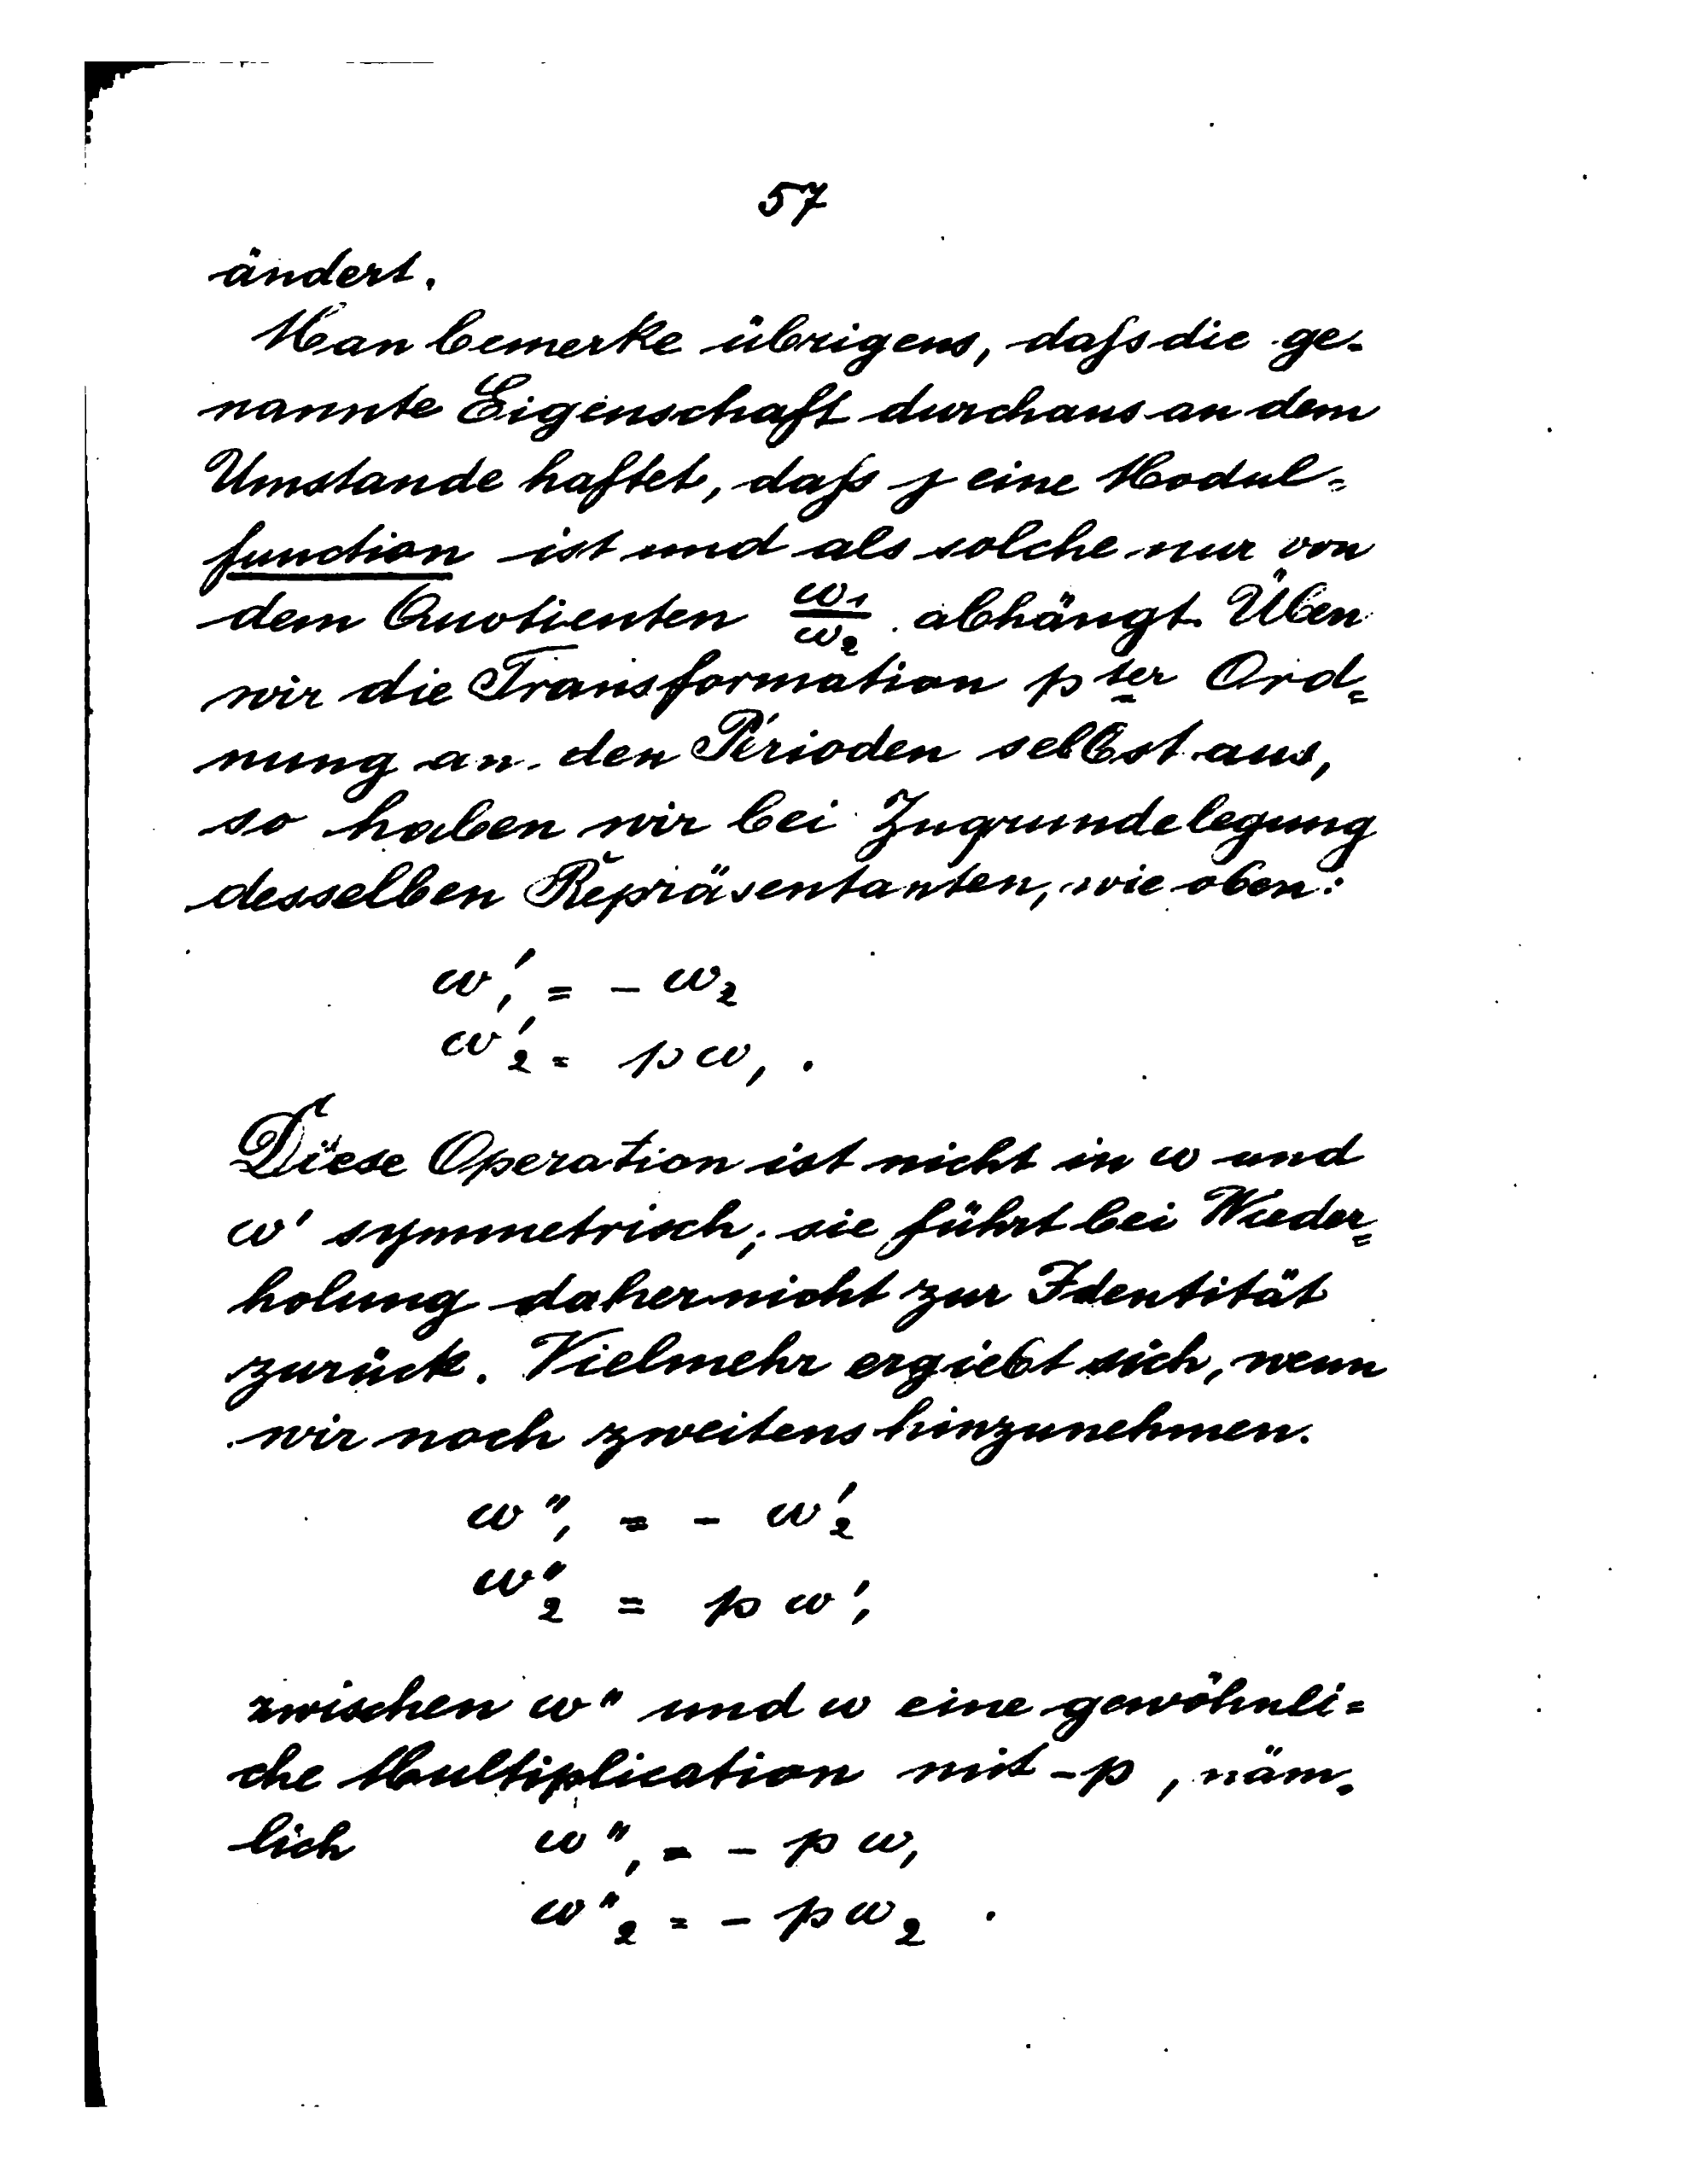 57
ändert.
Man bemerke übrigens, daſs die ge-
nannte Eigenschaft durchaus an dem
Umstande haftet, daſs j eine Modul-
function ist und als solche nur von
dem Quotienten ω₁/ω₂ abhängt. Üben
wir die Transformation pter Ord=
nung an den Perioden selbst aus,
so haben wir bei Zugrundelegung
desselben Repräsentanten, wie oben:
ω₁' = - ω₂
ω₂' = pω₁.
Diese Operation ist nicht in ω und
ω' symmetrisch; sie führt bei Wieder=
holung daher nicht zur Identität
zurück. Vielmehr ergiebt sich, wenn
wir noch zweitens hinzunehmen.
ω₁" = - ω₂'
ω₂" = p ω₁'
zwischen ω" und ω eine gewöhnli=
che Multiplication mit -p, näm-
lich ω₁" = - pω₁
ω₂" = - pω₂.